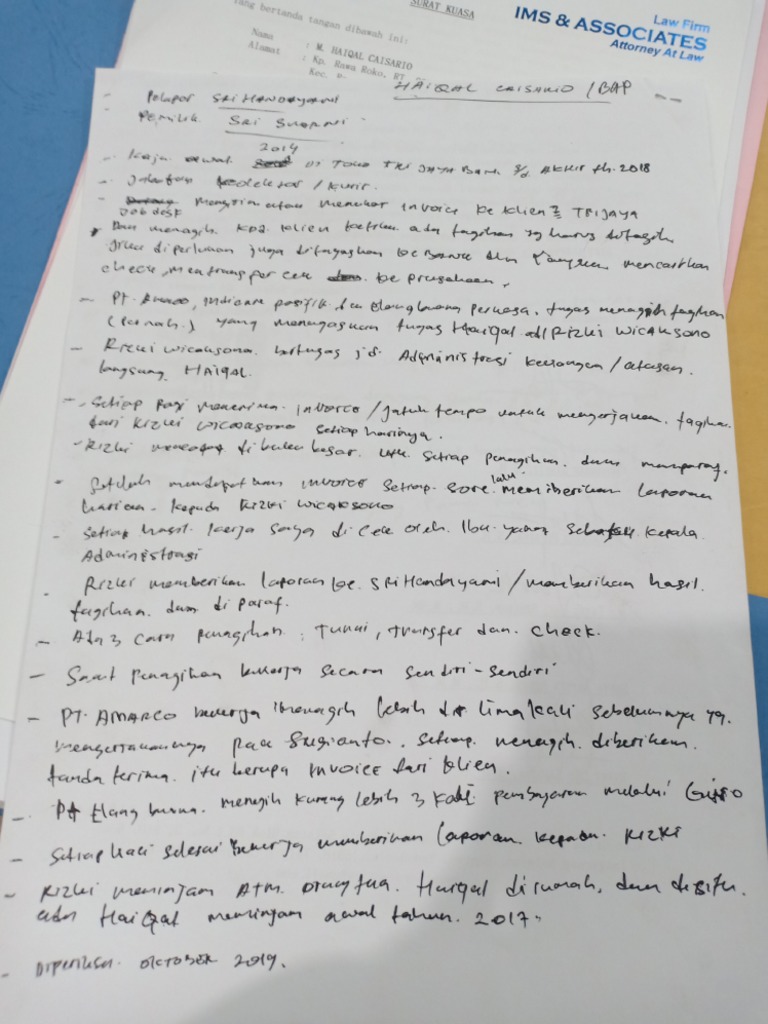 SURAT KUASA
yang bertanda tangan dibawah ini:
Nama : M. HAIQAL CAISARIO
Alamat : Kp. Rawa Roko, RT
Kec.
Law Firm
IMS & ASSOCIATES
Attorney At Law
HAIQAL CAISARIO / BAP
- Pelapor SRI HANDAYANI
- Pemilik SRI SUARNI
2014
- Kerja awal di Toko TRI JAYA Baru s/d AKHIR th. 2018
- Jabatan kolektor / kurir.
- mengirim atau menukar invoice ke klien TRIJAYA
Job desk
Dan menagih kpd. klien ketika ada tagihan yg harus ditagih
Jika diperlukan juga ditugaskan ke Bank dan mencairkan
check, mentransfer cek ke perusahaan.
- PT. Amarco, Indicare pasifik dan Elang buana perkasa. tugas menagih tagihan
(pernah) yang menugaskan tugas Haiqal adl Rizki Wicaksono
- Rizki Wicaksono bertugas jd. Administrasi keuangan / atasan
langsung HAIQAL.
- Setiap pagi menerima Invoice / jatuh tempo untuk mengerjakan tagihan
dari Rizki Wicaksono setiap harinya.
- Rizki mencatat di buku besar utk setiap penagihan dan memparaf.
- Setelah mendapatkan invoice setiap sore lalu memberikan laporan
harian kepada Rizki Wicaksono
- Setiap hasil kerja saya di cek oleh Ibu yang kepala
Administrasi
- Rizki memberikan laporan ke Sri Handayani / memberikan hasil
tagihan dan di paraf.
- Ada 3 cara penagihan : Tunai, transfer dan check.
- Saat penagihan bekerja secara sendiri-sendiri
- PT. AMARCO bekerja menagih lebih dr lima kali sebelumnya yg
mengerjakannya Pak Sugianto. Setiap menagih diberikan
tanda terima itu berupa Invoice dari klien.
- Pt Elang buana menagih kurang lebih 3 kali pembayaran melalui Giro
- Setiap kali selesai bekerja memberikan laporan kepada Rizki
- Rizki meminjam Atm Orangtua Haiqal dirumah, dan disitu
ada Haiqal meminjam awal tahun 2017.
- Diperiksa OKTOBER 2019.